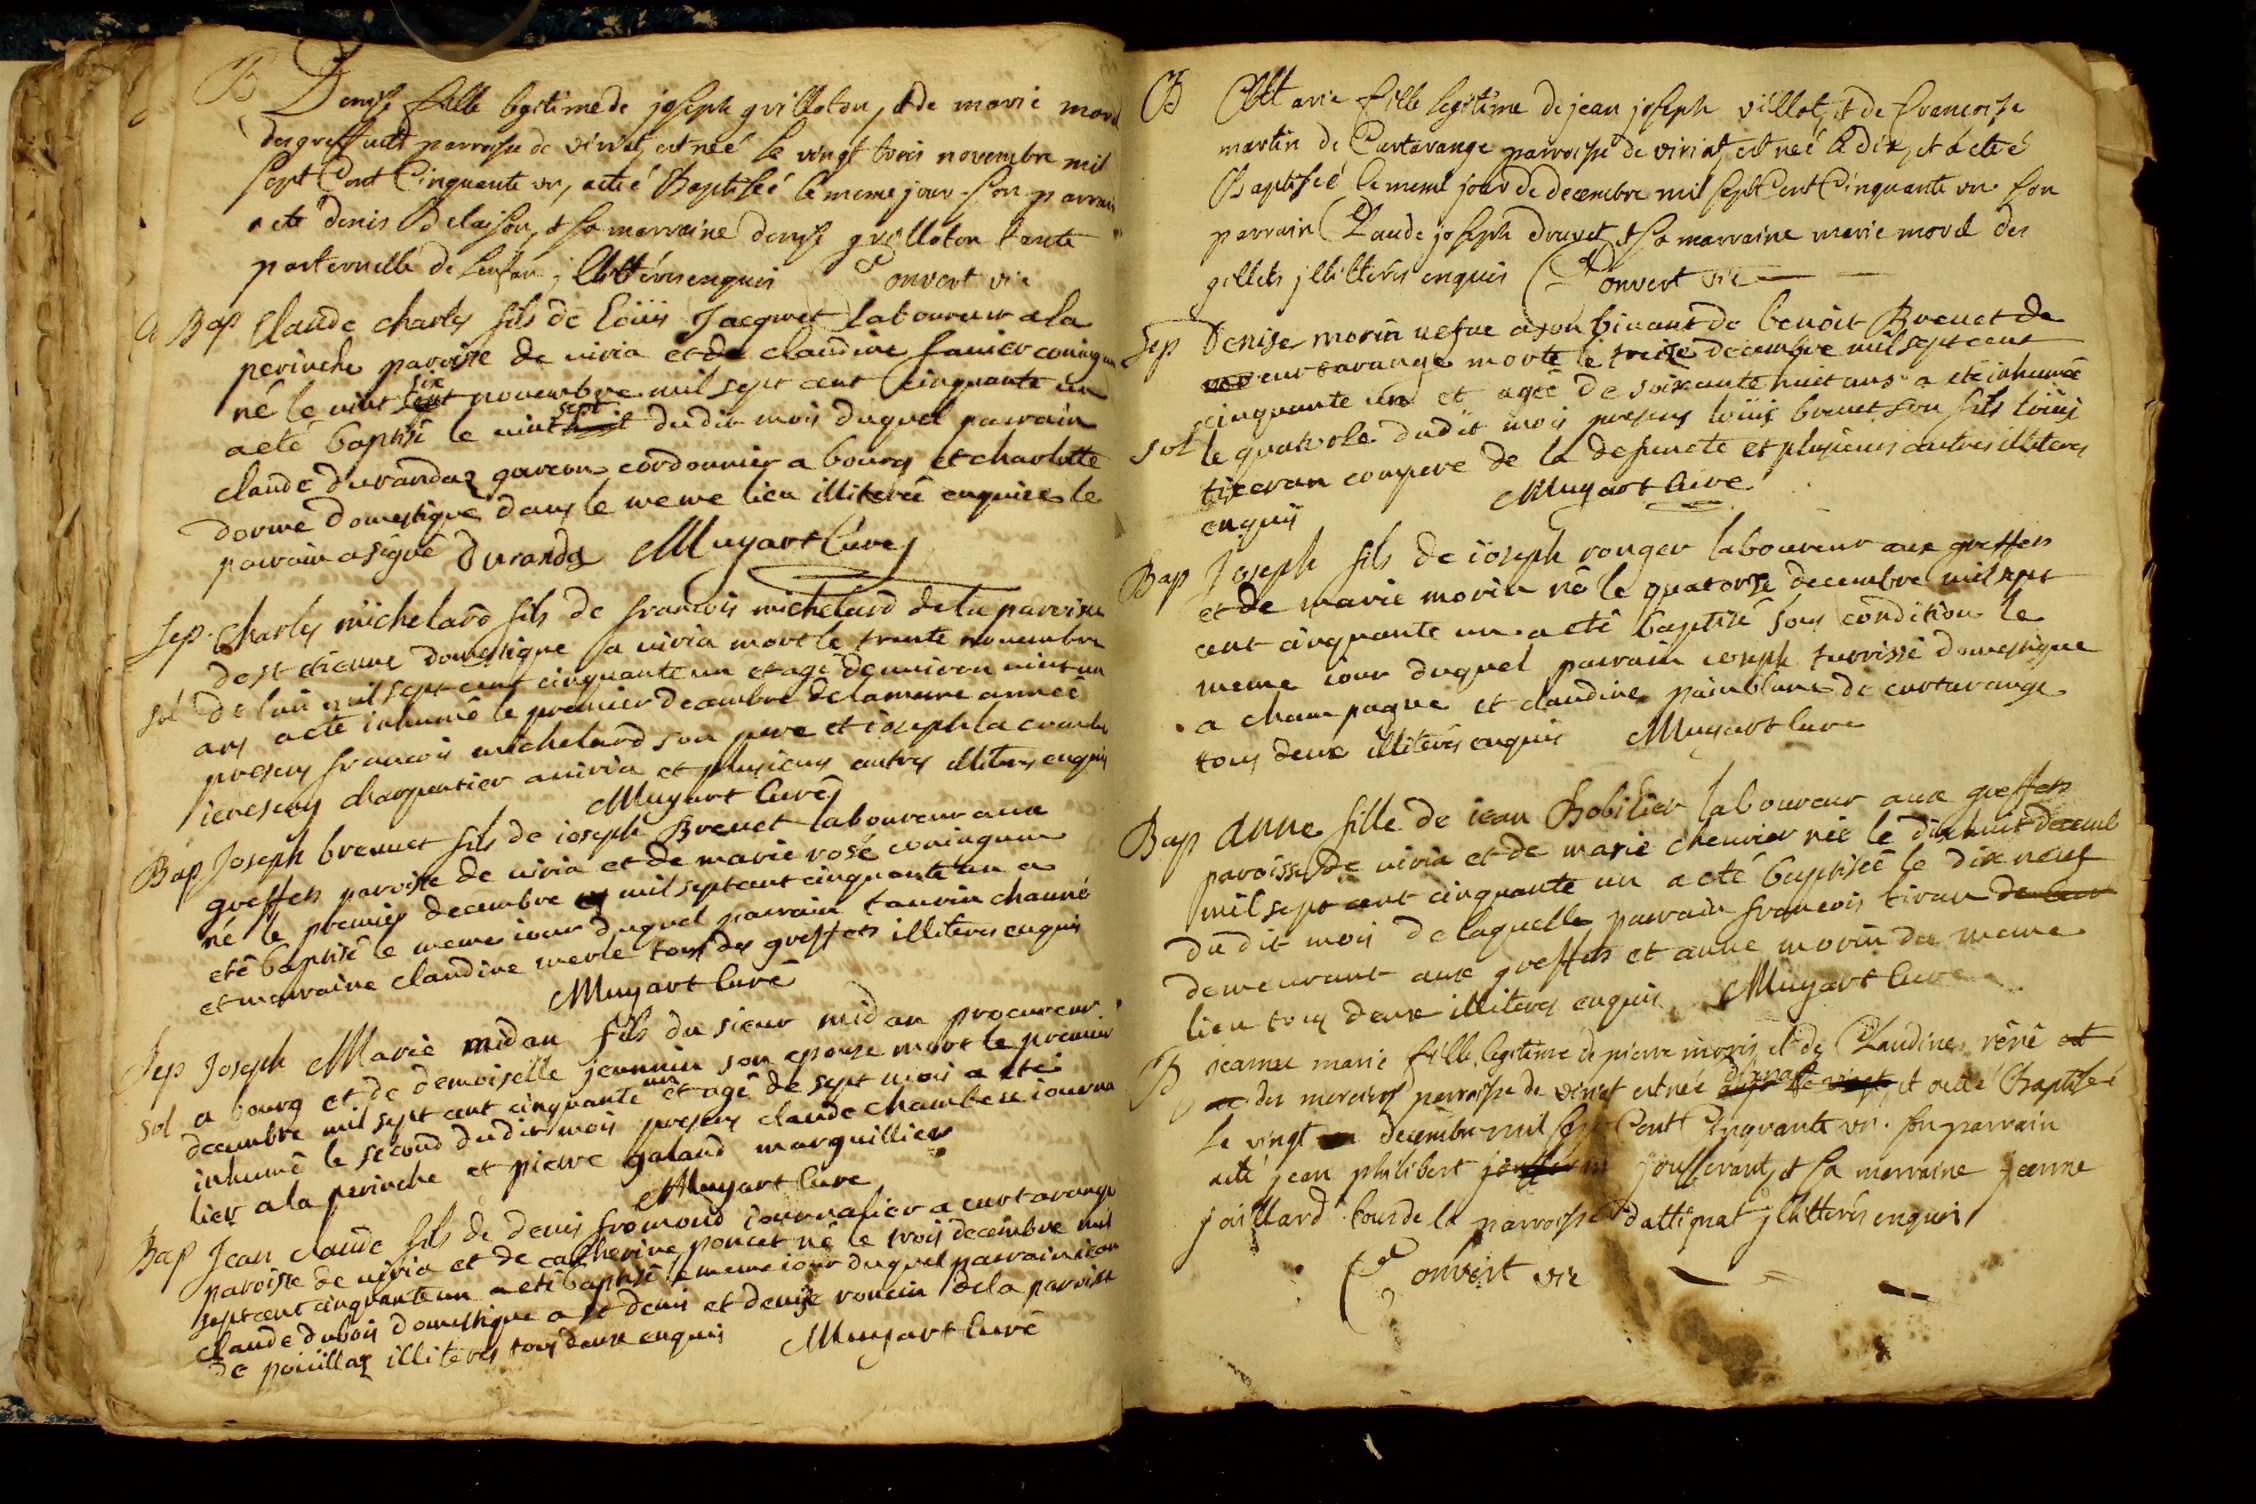 B Denise fille legitime de joseph guilloton, et de marie morel
des greffets parroisse de viriat, est neé le vingt trois novembre mil
sept Cent Cinquante un, a eté Baptiseé le meme jour. son parrain
a ete denis Belaison, et sa marraine denise guilloton tante
paternelle de lenfan jllitterés enquis Convert vic
Bap Claude charles fils de loüis Jacquet laboureur a la
perinche paroisse de viria et de claudine favier coniugue
né le vint sept six novembre mil sept cent cinquante un
a eté baptisé le vint huit sept du dit mois duquel parrain
claude durandaz garcon cordonnier a bourg et charlotte
dorme domestique dans le meme lieu illiterée enquise le
parrain a signé Duranda Muyart Curé
Sep charles michelard fils de francois michelard de la paroisse
de st etienne domestique a viria mort le trente novembre
Sol de l'an mil sept cent cinquante un et agé d'environ vint un
ans a eté inhumé le premier decembre de la meme année
presens francois michelard son pere et ioseph la
charpentier a viria et plusieurs autres illiteres enquis
Muyart Curé
Bap Joseph brevuet fils de ioseph Brevet laboureur aux
greffets paroisse de viria et de marie rosé coniugues
né le premier decembre mil sept cent cinquante un a
eté baptisé le meme iour duquel parrain tauvin channé
et marraine claudine merle tous des greffets illiteres enquis
Muyart Curé
Sep Joseph Marie midan fils du sieur midan procureur
Sol a bourg et de demoiselle jeannin son epouse mort le premier
decembre mil sept cent cinquante un et agé de sept mois a eté
inhumé le second du dit mois presens claude chambere iourna
lier a la perinche et pierre galand marguillier
Muyart Curé
Bap Jean claude fils de denis fromond iournalier a curtarange
paroisse de viria et de catherine poncet né le trois decembre mil
sept cent cinquante un a eté baptisé le meme iour duquel parrain iean
claude dubois domestique a st denis et denise roncin de la paroisse
de poüillaz illiteres tous deux enquis Muyart Curé
B Marie fille legitime de jean joseph villot, et de francoise
martin de Curtarange parroisse de viriat, est neé le dix, et a eteé
Baptiseé le meme jour de decembre mil sept Cent Cinquante un. son
parrain Claude joseph druvet, et sa marraine marie morel des
gillets jllitterés enquis Convert vic
Sep Denise morin vefve a son vivant de benoit Brevet de
curtarange morte le treize decembre mil sept cent
cinquante un et agée de soixante huit ans a eté inhumée
Sol le quatorse du dit mois presens loüis brevet son fils loüis
tiecran compere de la defuncte et plusieurs autres illiteres
enquis Muyart Curé
Bap Joseph fils de ioseph ronger laboureur aux greffets
et de marie morin né le quatorse decembre mil sept
cent cinquante un a eté baptisé sous condition le
meme iour duquel parrain ioseph turrissi domestique
a champagne et claudine painblanc de curtarange
tous deux illiterés enquis Muyart Cure
Bap anne fille de iean Bobilier laboureur aux greffets
paroisse de viria et de marie chevrier née le dix huit decemb
mil sept cent cinquante un a eté baptisée le dix neuf
du dit mois de laquelle parrain francois tiran
demeurant aux greffets et anne morin du meme
lieu tous deux illiteres enquis Muyart Cure
B jeanne marie fille legitime de pierre moris et de Claudine réné
des merciers parroisse de viriat est née dix neuf, et a eté Baptiseé
le vingt decembre mil sept Cent Cinquante un. son parrain
a eté jean philibert joufferant, et sa marraine jeanne
jaillard tous de la parroisse d'attignat jllitterés enquis
Convert vic